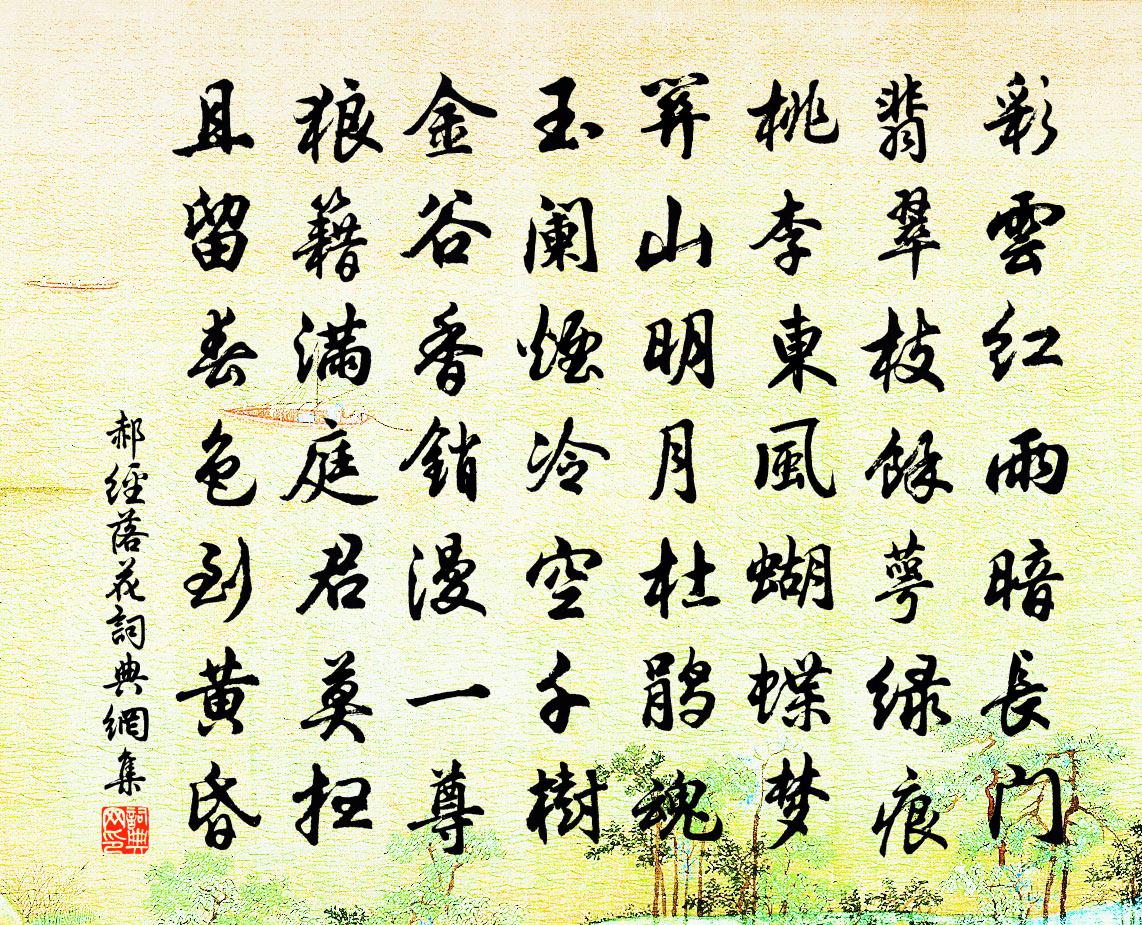 彩雲紅雨暗長门
翡翠枝餘萼緑痕
桃李東風蝴蝶梦
關山明月杜鹃魂
玉阑煙冷空千樹
金谷香銷漫一尊
狼籍滿庭君莫扫
且留春色到黄昏
郝經落花詞典網集
詞典网印